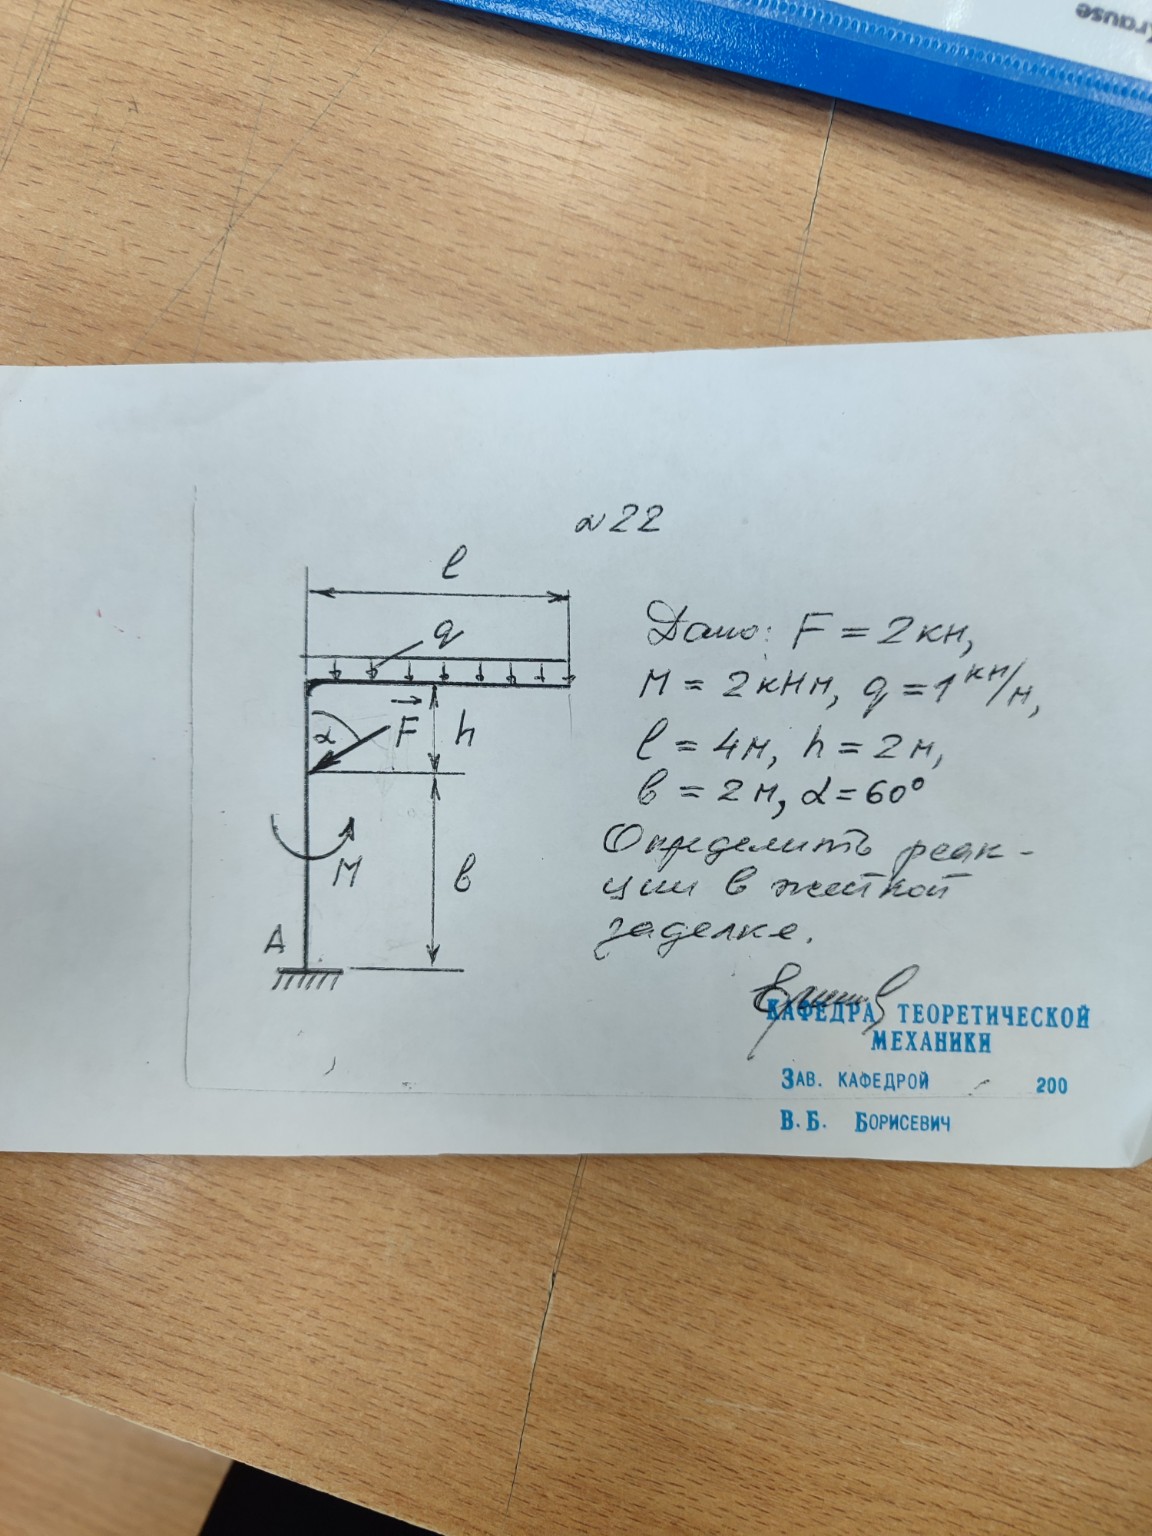 Krause
№22
l
q
Дано: F = 2кн,
M = 2кНм, q = 1 кн/м,
α
F
h
l = 4м, h = 2м,
в = 2м, α = 60°
Определить реак-
M
в
ции в жесткой
A
заделке.
КАФЕДРА ТЕОРЕТИЧЕСКОЙ
МЕХАНИКИ
ЗАВ. КАФЕДРОЙ 200
В. Б. БОРИСЕВИЧ